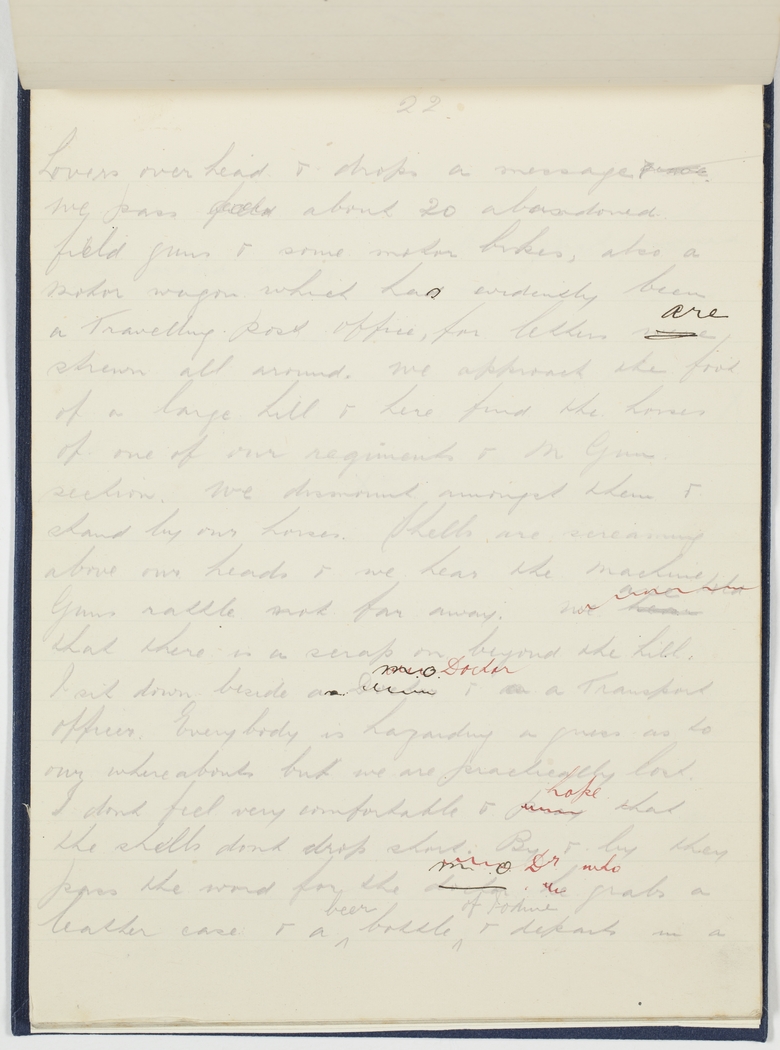 22.
hovers over head & drops a message
we pass field about 20 abandoned
field guns & some motor bikes, also a
motor wagon which has evidently been
are
a Travelling post office, for letters were
strewn all around. We approach the foot
of a large hill & here find the horses
of one of our regiments & M Gun
section. We dismount amongst them &
stand by our horses. Shells are screaming
above our heads & we hear the machine
Guns rattle not far away. We hear
that there is a scrap on beyond the hill.
M.O. Doctor
I sit down beside a & a Transport
officer. Everybody is hazarding a guess as to
our whereabouts but we are practically lost.
hope
I dont feel very comfortable & pray that
the shells dont drop short. By & by they
M.O Dr who
pass the word for the doctor. He grabs a
beer of Iodine
leather case & a bottle & departs in a